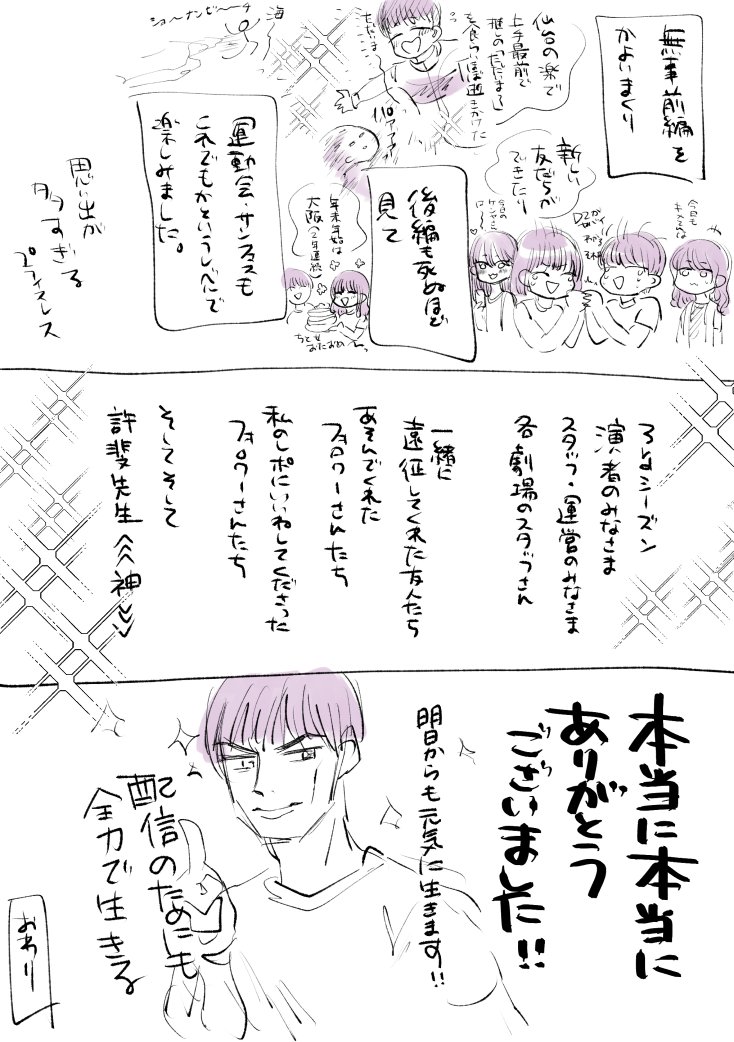 無事前編を
かよいまくり
仙台の楽で
上手最前で
推しの「ただいま〜」
を食らいほぼ逝きかけた
ただいま
パァァァ
新しい
友だちが
できたり
今日も
キメてんな
わかる
今日の
ケンヤさん
は〜♡
後編も死ぬほど
見て
年末年始は
大阪(2年連続)
海
ショーナンビーチ
運動会・サンフェスも
これでもかというレベルで
楽しみました。
思い出が
多すぎる
プライスレス
3rdシーズン
演者のみなさま
スタッフ・運営のみなさま
各劇場のスタッフさん
一緒に
遠征してくれた友人たち
あそんでくれた
フォロワーさんたち
私のレポにいいねしてくださった
フォロワーさんたち
そしてそして
許斐先生《《神》》
本当に本当に
ありがとう
ございました!!
明日からも元気に生きます!!
配信のためにも
全力で生きる
おわり